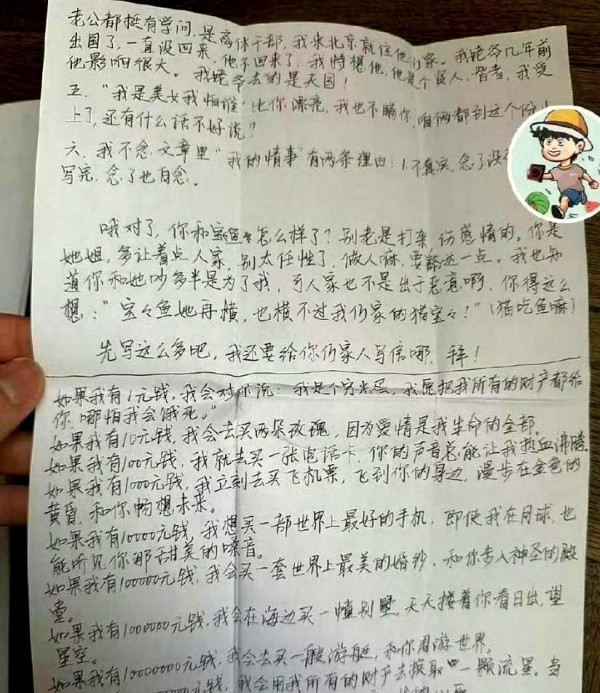 老公都挺有学问,是离休干部,我来北京就住他们家。我姥爷几年前
出国了,一直没回来,他不回来了,我特想他,他是个好人、智者,我受
他影响很大。我姥爷去的是天国!
五."我是美女我怕谁"比你漂亮,我也不瞒你,咱俩都到这个份
上了,还有什么话不好说?
六.我不念文章里"我的情事"有两条理由:1.不真实,念了没
写完,念了也白念。
哦对了,你和宝鱼怎么样了?别老是打架,伤感情的。你是
她姐,多让着点人家,别太任性了,做人嘛,要豁达一点。我也知
道你和她吵多半是为了我,可人家也不是出于恶意啊,你得这么
想:"宝々鱼她再横,也横不过我们家的猫宝々!"(猫吃鱼嘛)
先写这么多吧,我还要给你们家人写信哪,拜!
如果我有1元钱,我会对你说:我是个穷光蛋,我愿把我所有的财产都给
你,哪怕我会饿死。"
如果我有10元钱,我会去买两朵玫瑰,因为爱情是我生命的全部。
如果我有100元钱,我就去买一张电话卡,你的声音总能让我热血沸腾
如果我有1000元钱,我立刻去买飞机票,飞到你的身边,漫步在金色的
黄昏,和你畅想未来。
如果我有10000元钱,我想买一部世界上最好的手机,即使我在月球,也
能听见你那甜美的嗓音。
如果我有100000元钱,我会买一套世界上最美的婚纱,和你步入神圣的殿
堂。
如果我有1000000元钱,我会在海边买一幢别墅,天天搂着你看日出,望
星空。
如果我有10000000元钱,我会去买一艘游艇,和你周游世界。
我会用我所有的财产去换取一颗流星。当